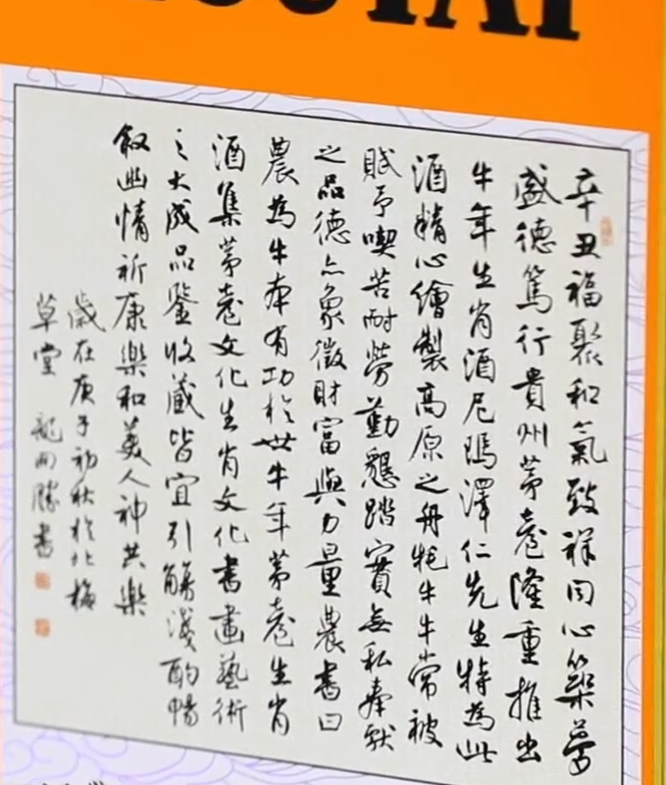 辛丑福聚和氣致祥同心築夢
盛德篤行貴州茅臺隆重推出
牛年生肖酒尼瑪澤仁先生特為此
酒精心繪製高原之舟牦牛牛常被
賦予喫苦耐勞勤懇踏實無私奉獻
之品德亦象徵財富與力量農書曰
農為牛本有功於世牛年茅臺生肖
酒集茅臺文化生肖文化書畫藝術
之大成品鑒收藏皆宜引觴淺酌暢
敘幽情祈康樂和美人神共樂
歲在庚子初秋於北梅
草堂龍開勝書